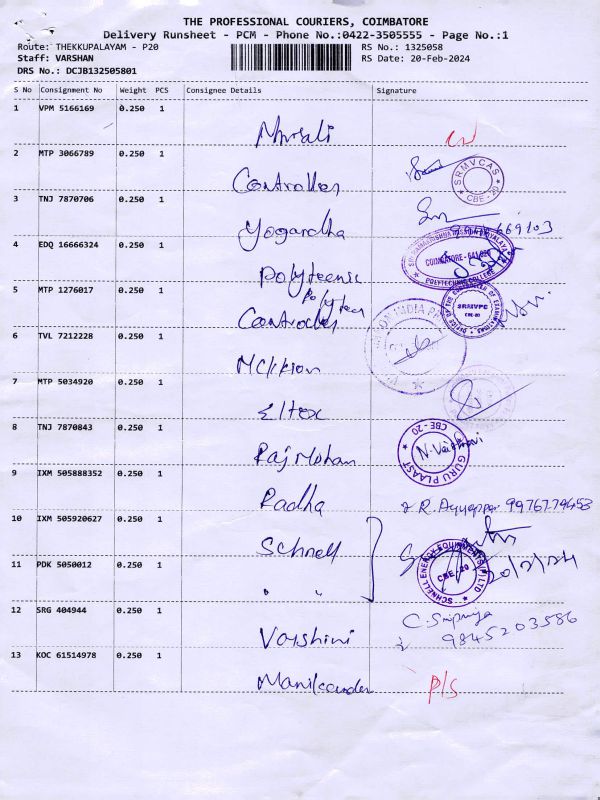 THE PROFESSIONAL COURIERS, COIMBATORE
Delivery Runsheet - PCM - Phone No.:0422-3505555 - Page No.:1
Route: THEKKUPALAYAM - P20 RS No.: 1325058
Staff: VARSHAN RS Date: 20-Feb-2024
DRS No.: DCJB132505801
S No Consignment No Weight PCS Consignee Details Signature
1 VPM 5166169 0.250 1
Murali
2 MTP 3066789 0.250 1
Controller SRMVCAS CBE-20
3 TNJ 7870706 0.250 1
Yogardha
4 EDQ 16666324 0.250 1
COIMBATORE - 641020
POLYTECHNIC COLLEGE
Polyteenic
5 MTP 1276017 0.250 1
Polytecn
Controller OFFICE OF THE CONTROLLER OF EXAMINATIONS SRMVPC CBE-20
6 TVL 7212228 0.250 1
7 MTP 5034920 0.250 1
Eltex
8 TNJ 7870843 0.250 1
Raj Mohan GURU PLAAST CBE-20
9 IXM 505888352 0.250 1
Radha R. Ayyappan 9976779453
10 IXM 505920627 0.250 1
Schnell
11 PDK 5050012 0.250 1
SCHNELL ENERGY EQUIPMENTS (P) LTD CBE-20 20/2/24
" "
12 SRG 404944 0.250 1
C. Sripriya
Varshini 9845203586
13 KOC 61514978 0.250 1
Manikandan P/S